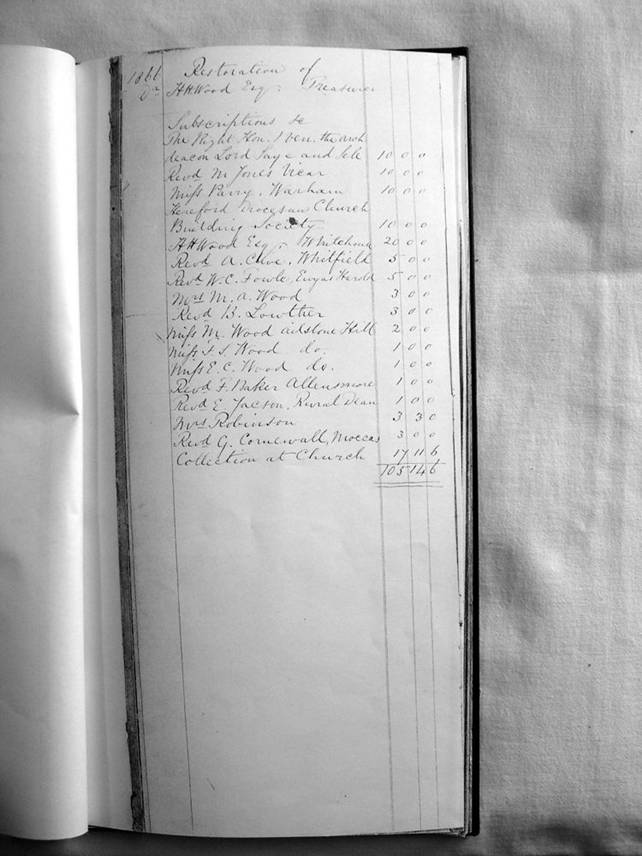 1861 Restoration of
Dr HHWood Esq r Treasurer
Subscriptions &c
The Right Hon. & Ven. the Arch
deacon Lord Saye and Sele 10 0 0
Revd M Jones Vicar 10 0 0
Miss Parry, Warham 10 0 0
Hereford Diocesan Church
Building Society 10 0 0
HHWood Esq r Whitehouse 20 0 0
Revd A. Clive, Whitfield 5 0 0
Revd W. C. Fowle, Ewyas Harold 5 0 0
Mrs M. A. Wood 3 0 0
Revd B. Lowther 3 0 0
Miss M. Wood Hill 2 0 0
Miss F. S. Wood do. 1 0 0
Miss E. C. Wood do. 1 0 0
Revd F. Baker Allensmore 1 0 0
Revd E Jacson, Rural Dean 1 0 0
Mrs Robinson 3 3 0
Revd G. Cornewall, Moccas 3 0 0
Collection at Church 17 11 6
105 14 6